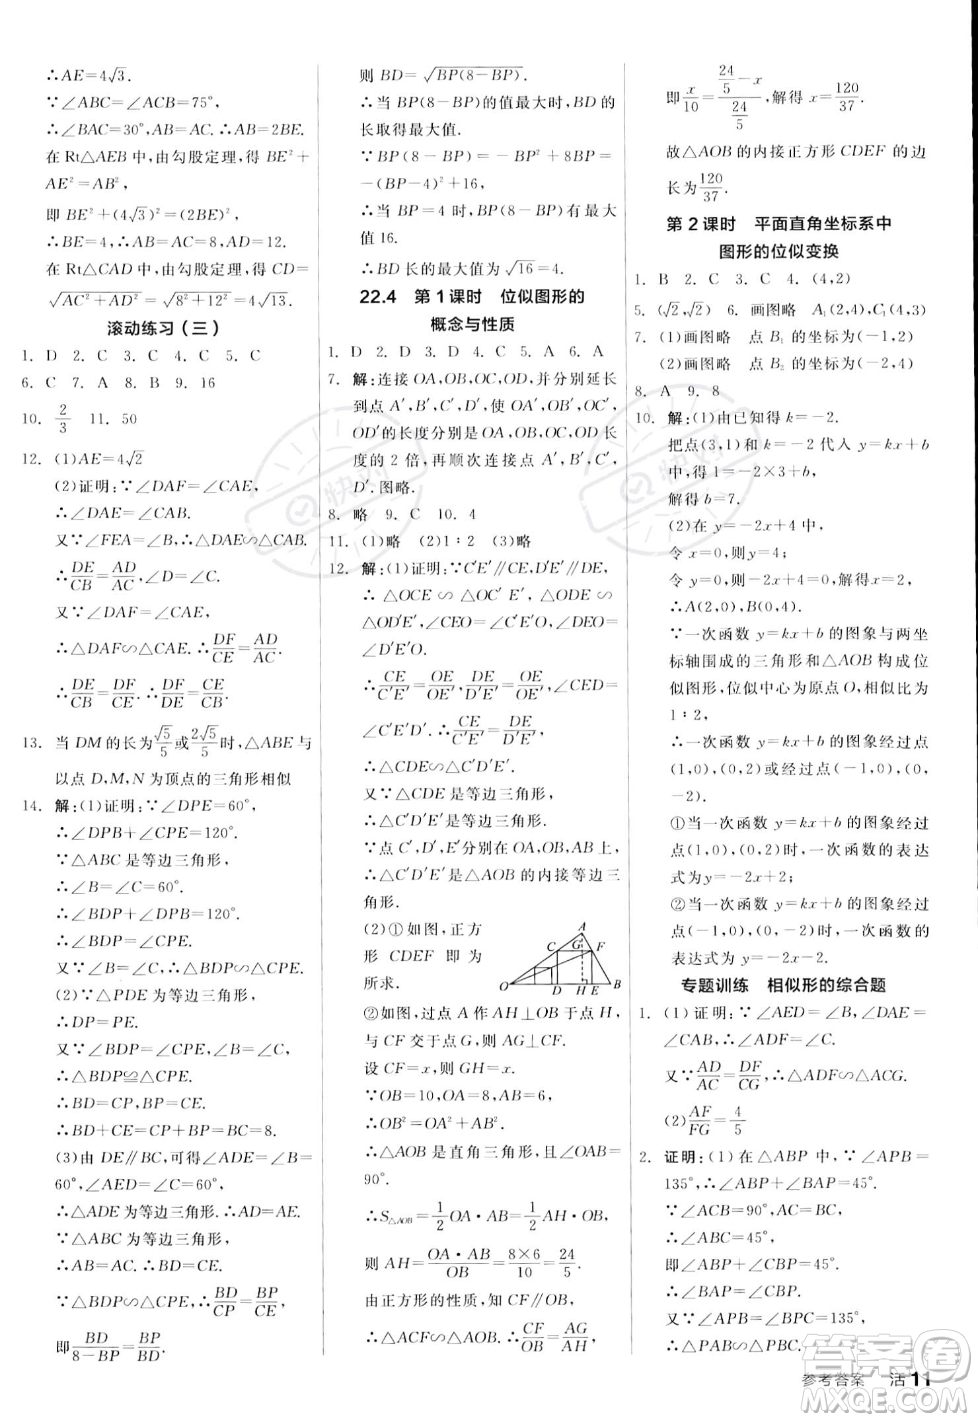 ∴AE=4√3.
∵∠ABC=∠ACB=75°,
∴∠BAC=30°,AB=AC.∴AB=2BE.
在 Rt△AEB 中,由勾股定理,得 BE²+
AE²=AB²,
即 BE²+(4√3)²=(2BE)².
∴BE=4.∴AB=AC=8.∴AD=12.
在 Rt△CAD 中,由勾股定理,得 CD=
√(AC²+AD²)=√(8²+12²)=4√13.
滚动练习(三)
1. D 2. C 3. C 4. C 5. C
6. C 7. A 8. B 9. 16
10. 2/3 11. 50
12. (1)AE=4√2
(2)证明:∵∠DAF=∠CAE,
∴∠DAE=∠CAB.
又∵∠FEA=∠B,∴△DAE∽△CAB.
∴DE/CB=AD/AC,∠D=∠C.
又∵∠DAF=∠CAE,
∴△DAF∽△CAE.∴DF/CE=AD/AC.
∴DE/CB=DF/CE.∴DF/DE=CE/CB.
13. 当 DM 的长为√5/5或2√5/5时,△ABE 与
以点 D,M,N 为顶点的三角形相似
14. 解:(1)证明:∵∠DPE=60°,
∴∠DPB+∠CPE=120°.
∵△ABC 是等边三角形,
∴∠B=∠C=60°.
∴∠BDP+∠DPB=120°.
∴∠BDP=∠CPE.
又∵∠B=∠C,∴△BDP∽△CPE.
(2)∵△PDE 为等边三角形,
∴DP=PE.
又∵∠BDP=∠CPE,∠B=∠C,
∴△BDP≌△CPE.
∴BD=CP,BP=CE.
∴BD+CE=CP+BP=BC=8.
(3)由 DE∥BC,可得∠ADE=∠B=
60°,∠AED=∠C=60°,
∴△ADE 为等边三角形.∴AD=AE.
∵△ABC 为等边三角形,
∴AB=AC.∴BD=CE.
∵△BDP∽△CPE,∴BD/CP=BP/CE,
即BD/(8-BP)=BP/BD.
则 BD=√(BP(8-BP)).
∴当 BP(8-BP)的值最大时,BD 的
长取得最大值.
∵BP(8-BP)=-BP²+8BP=
-(BP-4)²+16,
∴当 BP=4 时,BP(8-BP)有最大
值 16.
∴BD 长的最大值为√16=4.
22.4 第 1 课时 位似图形的
概念与性质
1. D 2. D 3. C 4. D 5. A 6. A
7. 解:连接 OA,OB,OC,OD,并分别延长
到点 A′,B′,C′,D′,使 OA′,OB′,OC′,
OD′的长度分别是 OA,OB,OC,OD 长
的 2 倍,再顺次连接点 A′,B′,C′,
D′.图略.
8. 略 9. C 10. 4
11. (1)略 (2)1∶2 (3)略
12. 解:(1)证明:∵C′E′∥CE,C′D′∥CD,
∴△OCE∽△OC′E′,△ODE∽
△OD′E′,∠CEO=∠C′E′O,∠DEO=
∠D′E′O.
∴CE/C′E′=OE/OE′,DE/D′E′=OE/OE′,∠CED=
∠C′E′D′.∴CE/C′E′=DE/D′E′.
∴△CDE∽△C′D′E′.
又∵△CDE 是等边三角形,
∴△C′D′E′是等边三角形.
∵点 C′,D′,E′分别在 OA,OB,AB 上,
∴△C′D′E′是△AOB 的内接等边三
角形.
(2)①如图,正方
形 CDEF 即为
所求.
A
C G F
O D H E B
②如图,过点 A 作 AH⊥OB 于点 H,
与 CF 交于点 G,则 AG⊥CF.
设 CF=x,则 GH=x.
∵OB=10,OA=8,AB=6,
∴OB²=OA²+AB².
∴△AOB 是直角三角形,∠OAB=
90°.
∴S△AOB=1/2OA·AB=1/2AH·OB,
则 AH=OA·AB/OB=8×6/10=24/5.
由正方形的性质,知 CF∥OB,
∴△ACF∽△AOB.∴CF/OB=AG/AH,
即x/10=(24/5-x)/(24/5),解得 x=120/37.
故△AOB 的内接正方形 CDEF 的边
长为120/37.
第 2 课时 平面直角坐标系中
图形的位似变换
1. B 2. C 3. C 4. (4,2)
5. (√2,√2) 6. 画图略 A₁(2,4),C₁(4,3)
7. (1)画图略 点 B₁的坐标为(-1,2)
(2)画图略 点 B₂的坐标为(-2,4)
8. A 9. 8
10. 解:(1)由已知得 k=-2.
把点(3,1)和 k=-2 代入 y=kx+b
中,得 1=-2×3+b,
解得 b=7.
(2)在 y=-2x+4 中,
令 x=0,则 y=4;
令 y=0,则-2x+4=0,解得 x=2.
∴A(2,0),B(0,4).
∵一次函数 y=kx+b 的图象与两坐
标轴围成的三角形和△AOB 构成位
似图形,位似中心为原点 O,相似比为
1∶2,
∴一次函数 y=kx+b 的图象经过点
(1,0),(0,2)或经过点(-1,0),(0,
-2).
①当一次函数 y=kx+b 的图象经过
点(1,0),(0,2)时,一次函数的表达
式为 y=-2x+2;
②当一次函数 y=kx+b 的图象经过
点(-1,0),(0,-2)时,一次函数的
表达式为 y=-2x-2.
专题训练 相似形的综合题
1. (1)证明:∵∠AED=∠B,∠DAE=
∠CAB,∴∠ADF=∠C.
又∵AD/AC=DF/CG,∴△ADF∽△ACG.
(2)AF/FG=4/5
2. 证明:(1)在△ABP 中,∵∠APB=
135°,∴∠ABP+∠BAP=45°.
∵∠ACB=90°,AC=BC,
∴∠ABC=45°,
即∠ABP+∠CBP=45°.
∴∠BAP=∠CBP.
又∵∠APB=∠BPC=135°,
∴△PAB∽△PBC.
参考答案 活 11
快对
答案圈
MXQE.COM